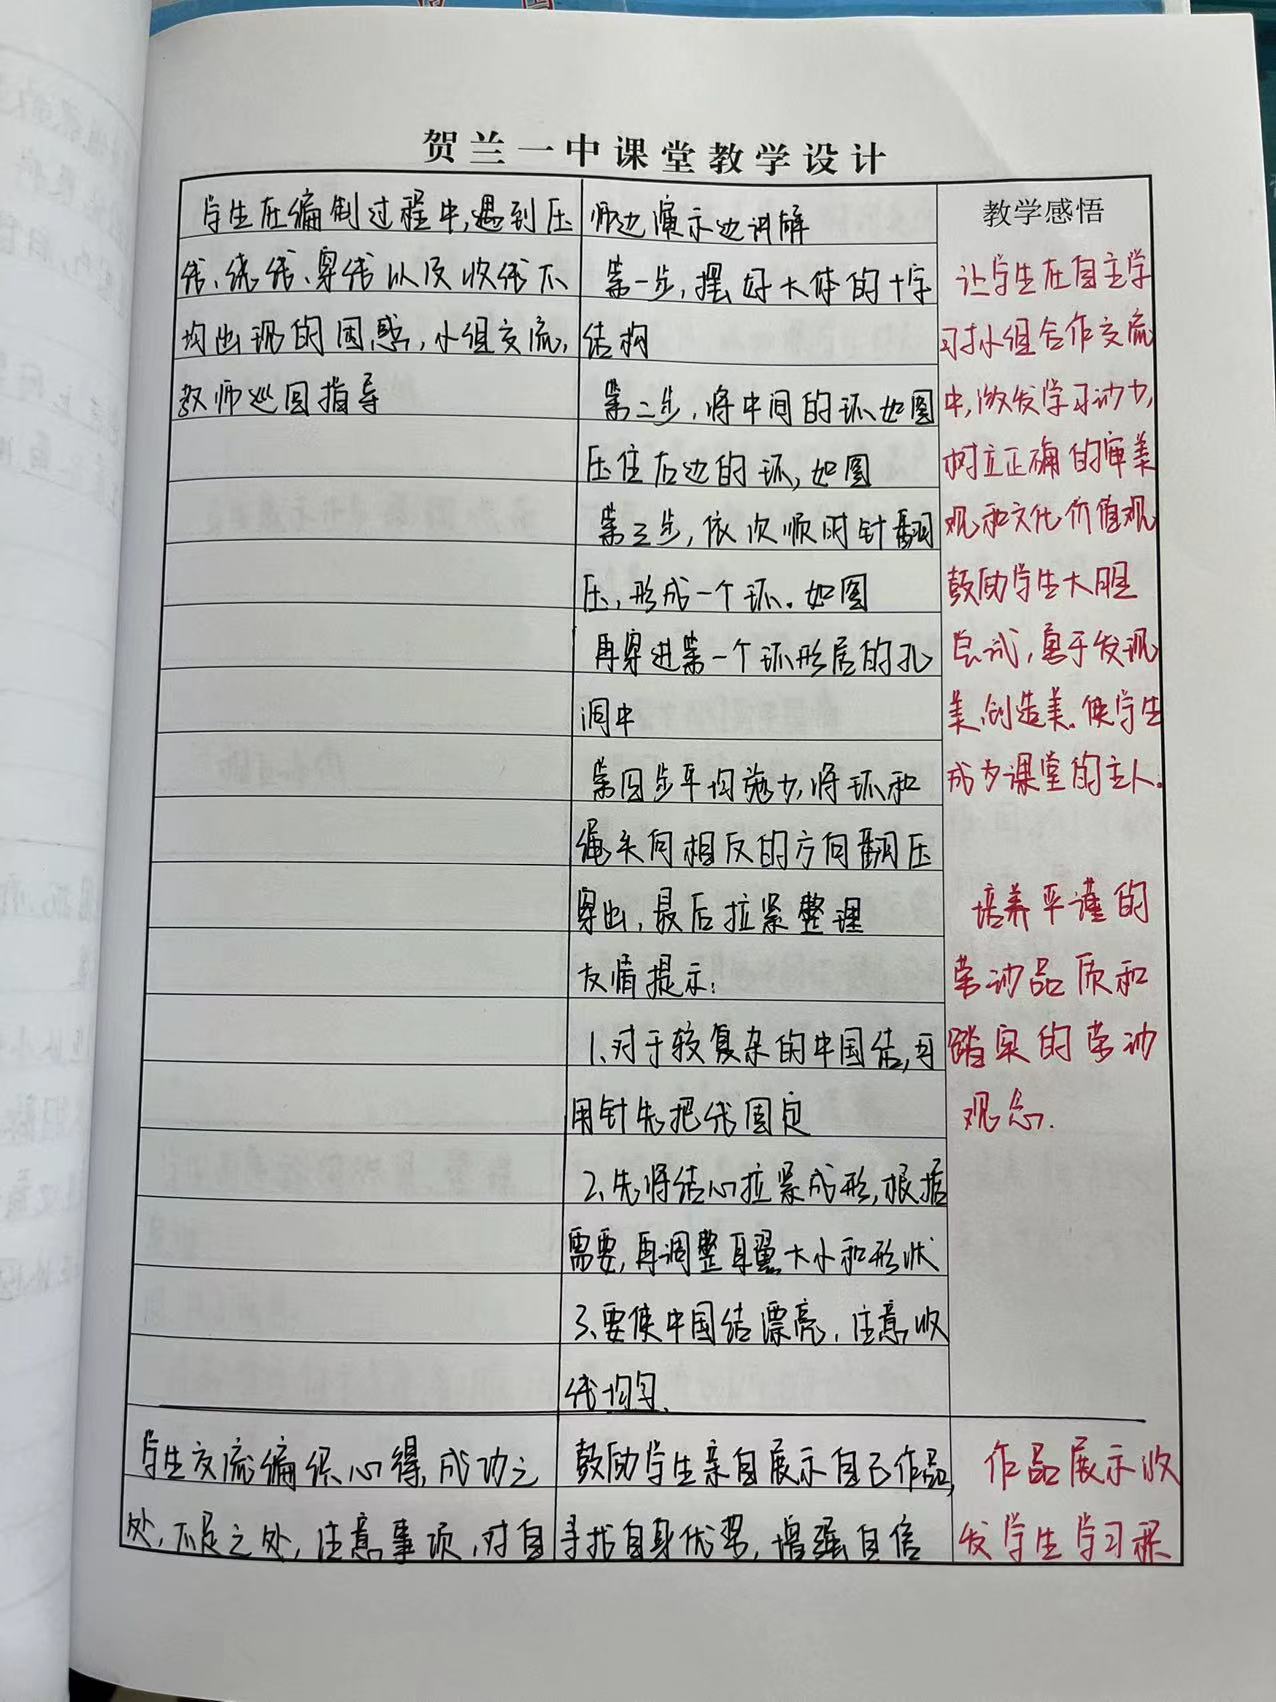 贺兰一中课堂教学设计
学生在编制过程中,遇到压
线、绕线、穿线以及收线不
均出现的困惑,小组交流,
教师巡回指导
师边演示边讲解
第一步,摆好大体的十字
结构
第二步,将中间的环如图
压住右边的环,如图
第三步,依次顺时针翻
压,形成一个环。如图
再穿进第一个环形层的孔
洞中
第四步平均施力,将环和
绳头向相反的方向翻压
穿出,最后拉紧整理
友情提示:
1、对于较复杂的中国结,可
用针先把线固定
2、先将结心拉紧成形,根据
需要,再调整耳翼大小和形状
3、要使中国结漂亮,注意收
线均匀.
教学感悟
让学生在自主学
习小组合作交流
中,激发学习动力,
树立正确的审美
观和文化价值观
鼓励学生大胆
尝试,勇于发现
美,创造美.使学生
成为课堂的主人。
培养严谨的
劳动品质和
踏实的劳动
观念.
学生交流编织心得,成功之
处,不足之处,注意事项,对自
鼓励学生亲自展示自己作品,
寻找自身优势,增强自信
作品展示收
发学生学习积